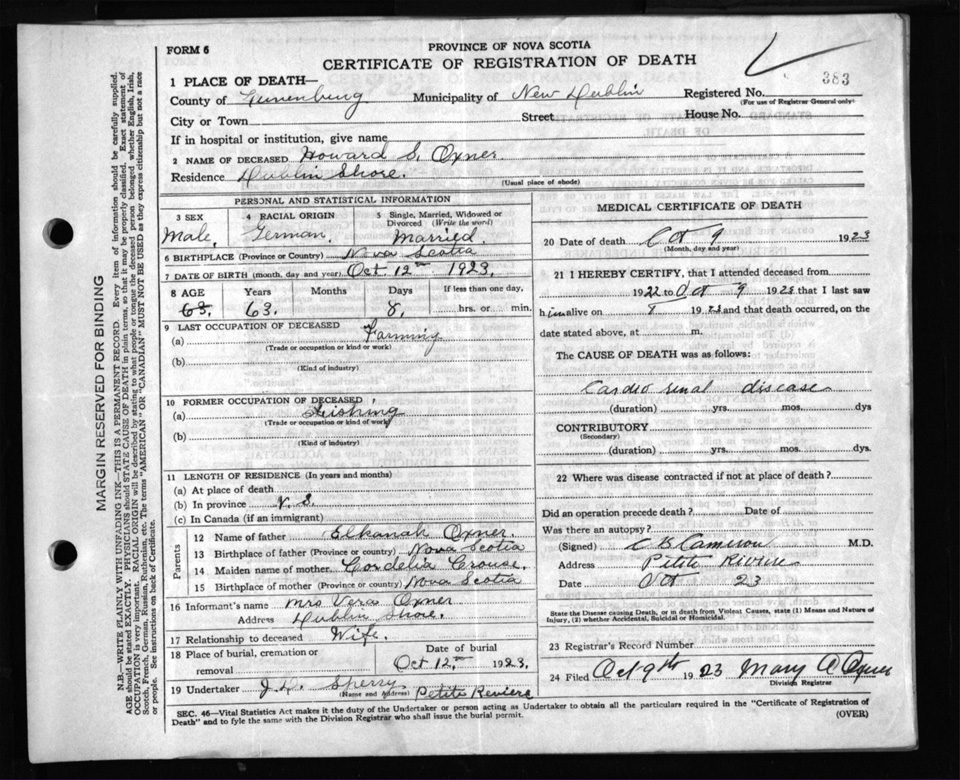 FORM 6
PROVINCE OF NOVA SCOTIA
CERTIFICATE OF REGISTRATION OF DEATH
383
1 PLACE OF DEATH—
County of Lunenburg Municipality of New Dublin Registered No.
(For use of Registrar General only)
City or Town Street House No.
If in hospital or institution, give name
2 NAME OF DECEASED Howard S. Oxner.
Residence Dublin Shore.
(Usual place of abode)
PERSONAL AND STATISTICAL INFORMATION
3 SEX 4 RACIAL ORIGIN 5 Single, Married, Widowed or Divorced (Write the word)
Male, German, Married.
6 BIRTHPLACE (Province or Country) Nova Scotia
7 DATE OF BIRTH (month, day and year) Oct 12th 1923.
8 AGE Years Months Days If less than one day,
63. 63. 8, hrs. or min.
9 LAST OCCUPATION OF DECEASED
(a) Farming
(Trade or occupation or kind or work)
(b)
(Kind of industry)
10 FORMER OCCUPATION OF DECEASED
(a) Fishing
(Trade or occupation or kind or work)
(b)
(Kind of industry)
11 LENGTH OF RESIDENCE (In years and months)
(a) At place of death
(b) In province N. S.
(c) In Canada (if an immigrant)
Parents
12 Name of father Elkanah Oxner.
13 Birthplace of father (Province or country) Nova Scotia
14 Maiden name of mother Cordelia Crouse.
15 Birthplace of mother (Province or country) Nova Scotia
16 Informant's name Mrs Vera Oxner
Address Dublin Shore.
17 Relationship to deceased Wife.
18 Place of burial, cremation or removal Date of burial
Oct 12th 1923.
19 Undertaker J. D. Sperry Petite Reviere
(Name and Address)
MEDICAL CERTIFICATE OF DEATH
20 Date of death Oct 9 1923
(Month, day and year)
21 I HEREBY CERTIFY, that I attended deceased from
1922 to Oct 9 1923 that I last saw
him alive on 8 1923 and that death occurred, on the
date stated above, at m.
The CAUSE OF DEATH was as follows:
Cardio renal disease
(duration) yrs. mos. dys
CONTRIBUTORY
(Secondary)
(duration) yrs. mos. dys.
22 Where was disease contracted if not at place of death?
Did an operation precede death? Date of
Was there an autopsy?
(Signed) C B Cameron M.D.
Address Petite Riviere
Date Oct 23
State the Disease causing Death, or in death from Violent Causes, state (1) Means and Nature of
Injury, (2) whether Accidental, Suicidal or Homicidal.
23 Registrar's Record Number
24 Filed Oct 9th 1923 Mary A Oxner
Division Registrar
SEC. 46—Vital Statistics Act makes it the duty of the Undertaker or person acting as Undertaker to obtain all the particulars required in the "Certificate of Registration of
Death" and to fyle the same with the Division Registrar who shall issue the burial permit.
(OVER)
MARGIN RESERVED FOR BINDING
N.B.—WRITE PLAINLY WITH UNFADING INK—THIS IS A PERMANENT RECORD. Every item of information should be carefully supplied.
AGE should be stated EXACTLY. PHYSICIANS should STATE CAUSE OF DEATH in plain terms, so that it may be properly classified. Exact statement of
OCCUPATION is very important. RACIAL ORIGIN will be described by stating to what people or tongue the deceased person belonged whether English, Irish,
Scotch, French, German, Russian, Ruthenian, etc. The terms "AMERICAN" OR "CANADIAN" MUST NOT BE USED as they express citizenship but not a race
or people. See instructions on back of Certificate.